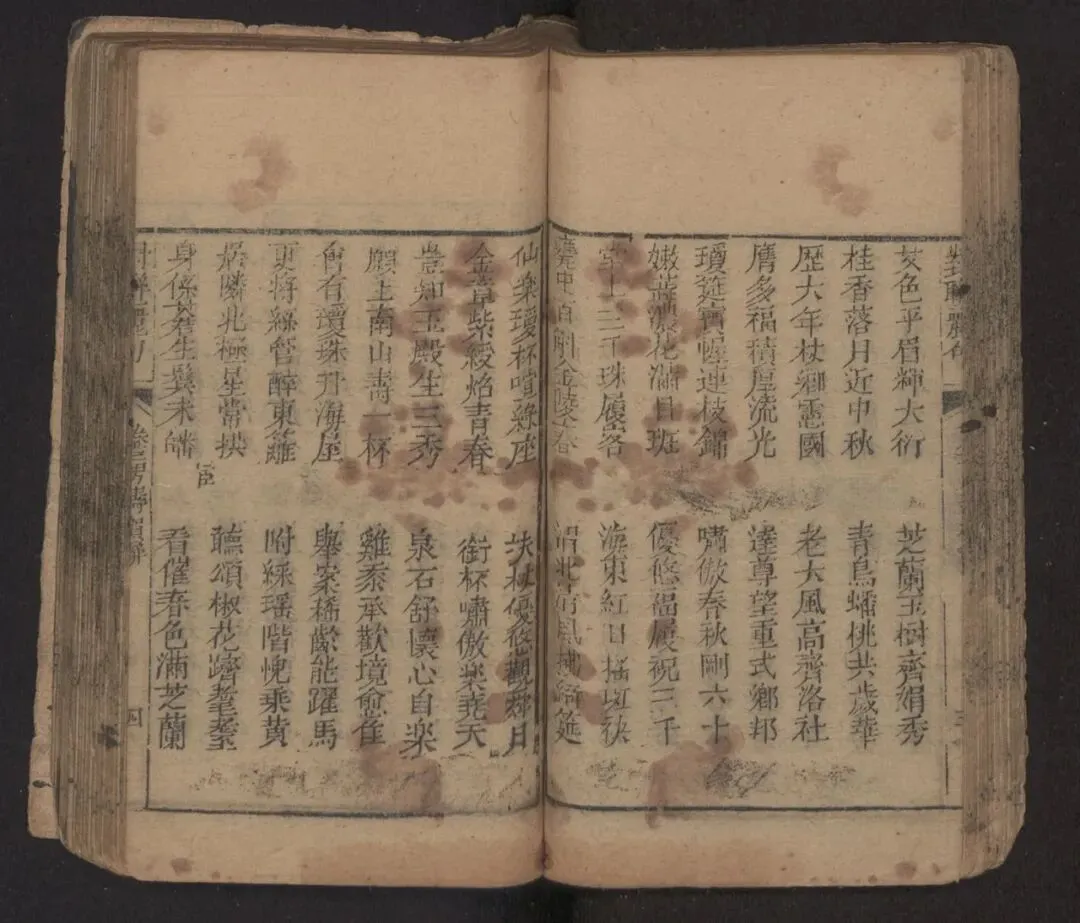 艾色平眉輝大衍
芝蘭玉樹齊娟秀
桂香落月近中秋
青鳥蟠桃共歲華
歴大年杖鄉憲國
老大風高齊洛社
膺多福積厚流光
達尊望重式鄉邦
瓊筵寶幄連枝錦
嘯傲春秋剛六十
嫩蕊濃花滿目班
優悠福履祝三千
堂上三千珠履客
海東紅日摇斑袂
甕中百斛金陵春
仙樂瓊杯喧綠座
扶杖優悠觀舜日
金章紫綬焰青春
銜杯嘯傲樂堯天
豈知玉殿生三秀
泉石舒懷心自楽
願上南山壽一杯
雞黍承歡境愈佳
會有瓊珠升海屋
舉案稀齡能躍馬
更將絲管醉東籬
附綵瑶階悅乗黄
北極星常拱
聽頌椒花躋耄耋
身係蒼生鬓未皤
看催春色滿芝蘭
臣
四